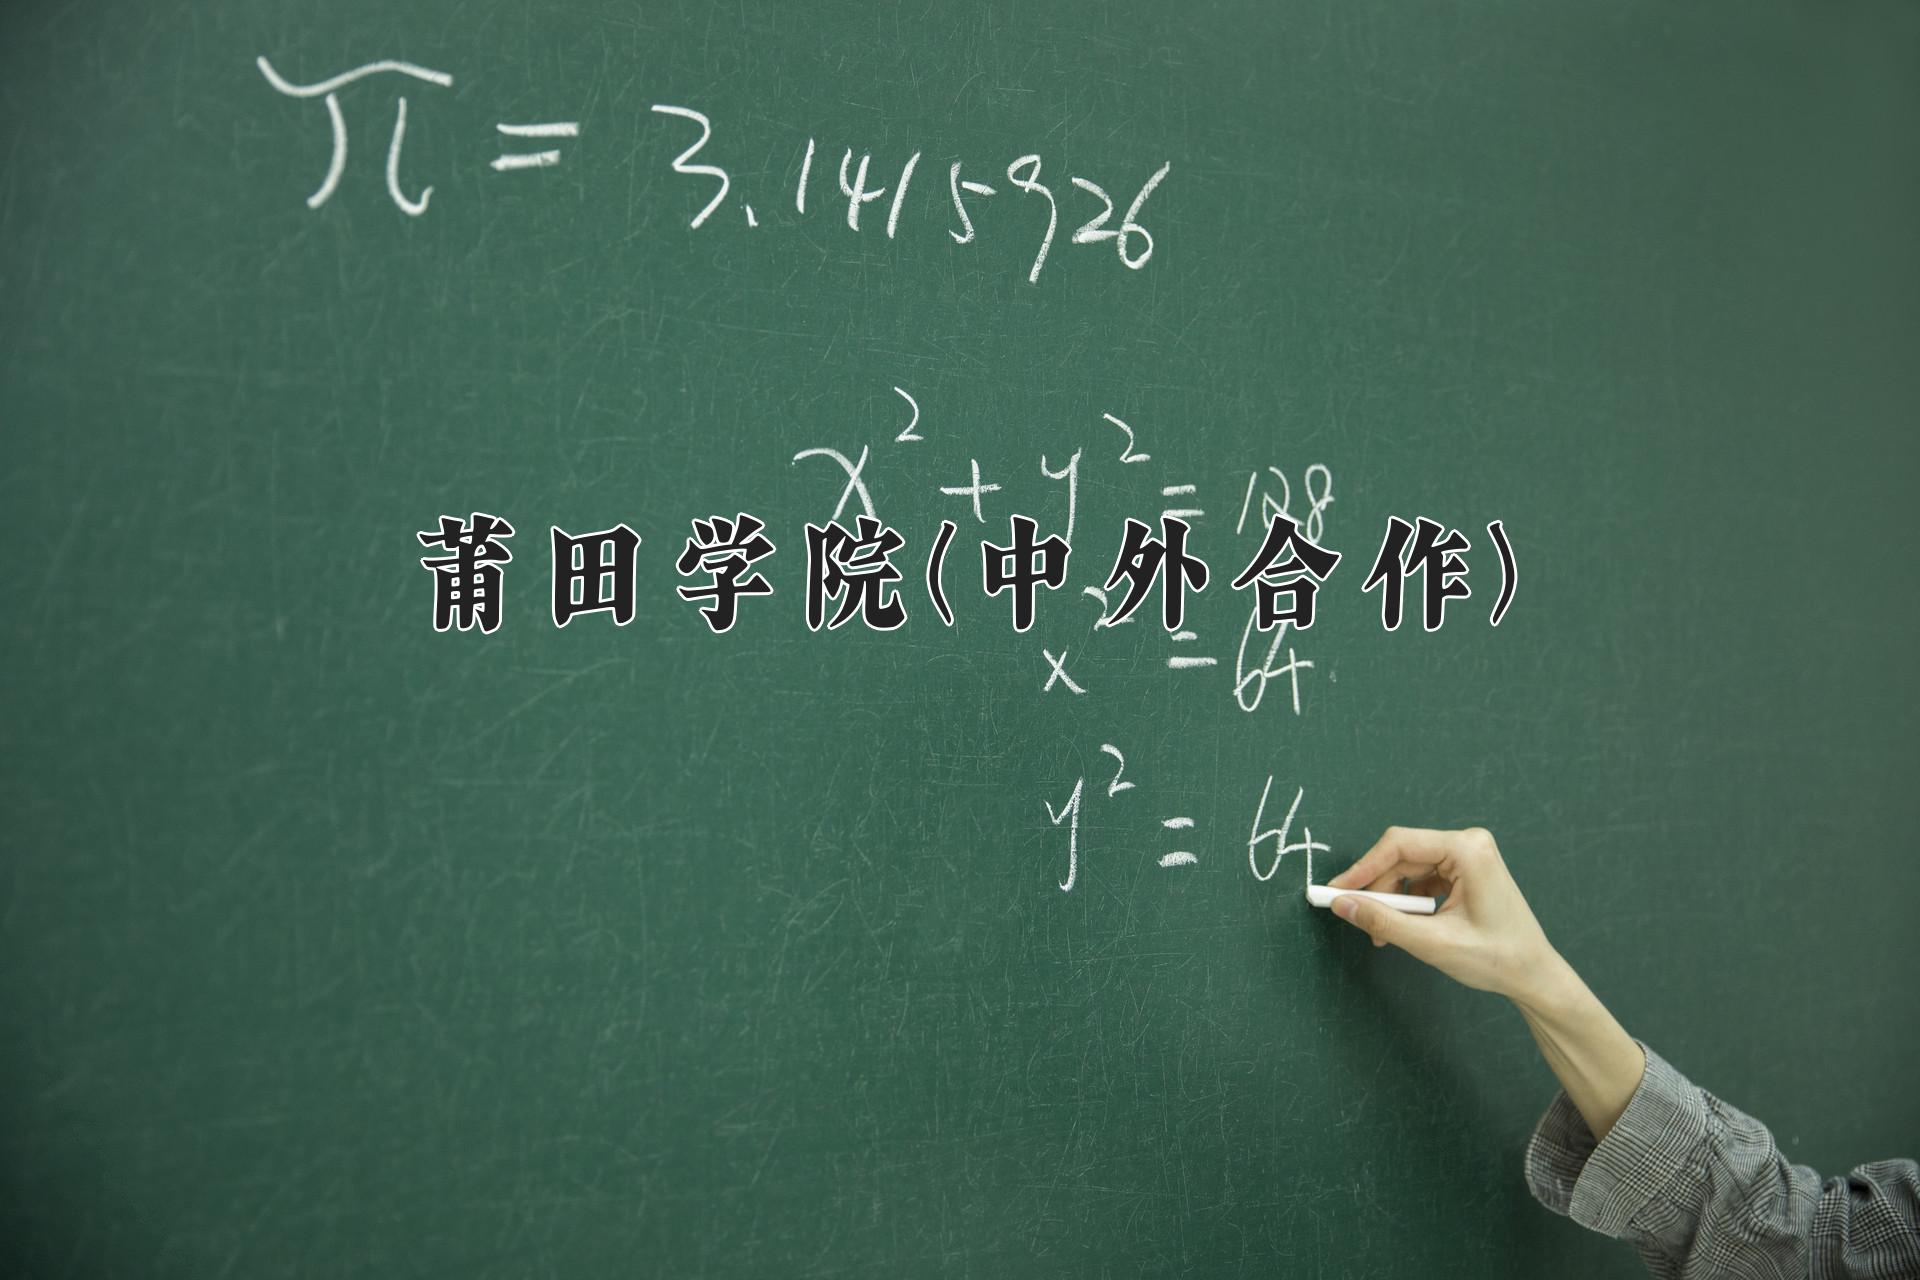 π = 3.1415926
x² + y² = 128
莆田学院(中外合作)
x² = 64
y² = 64